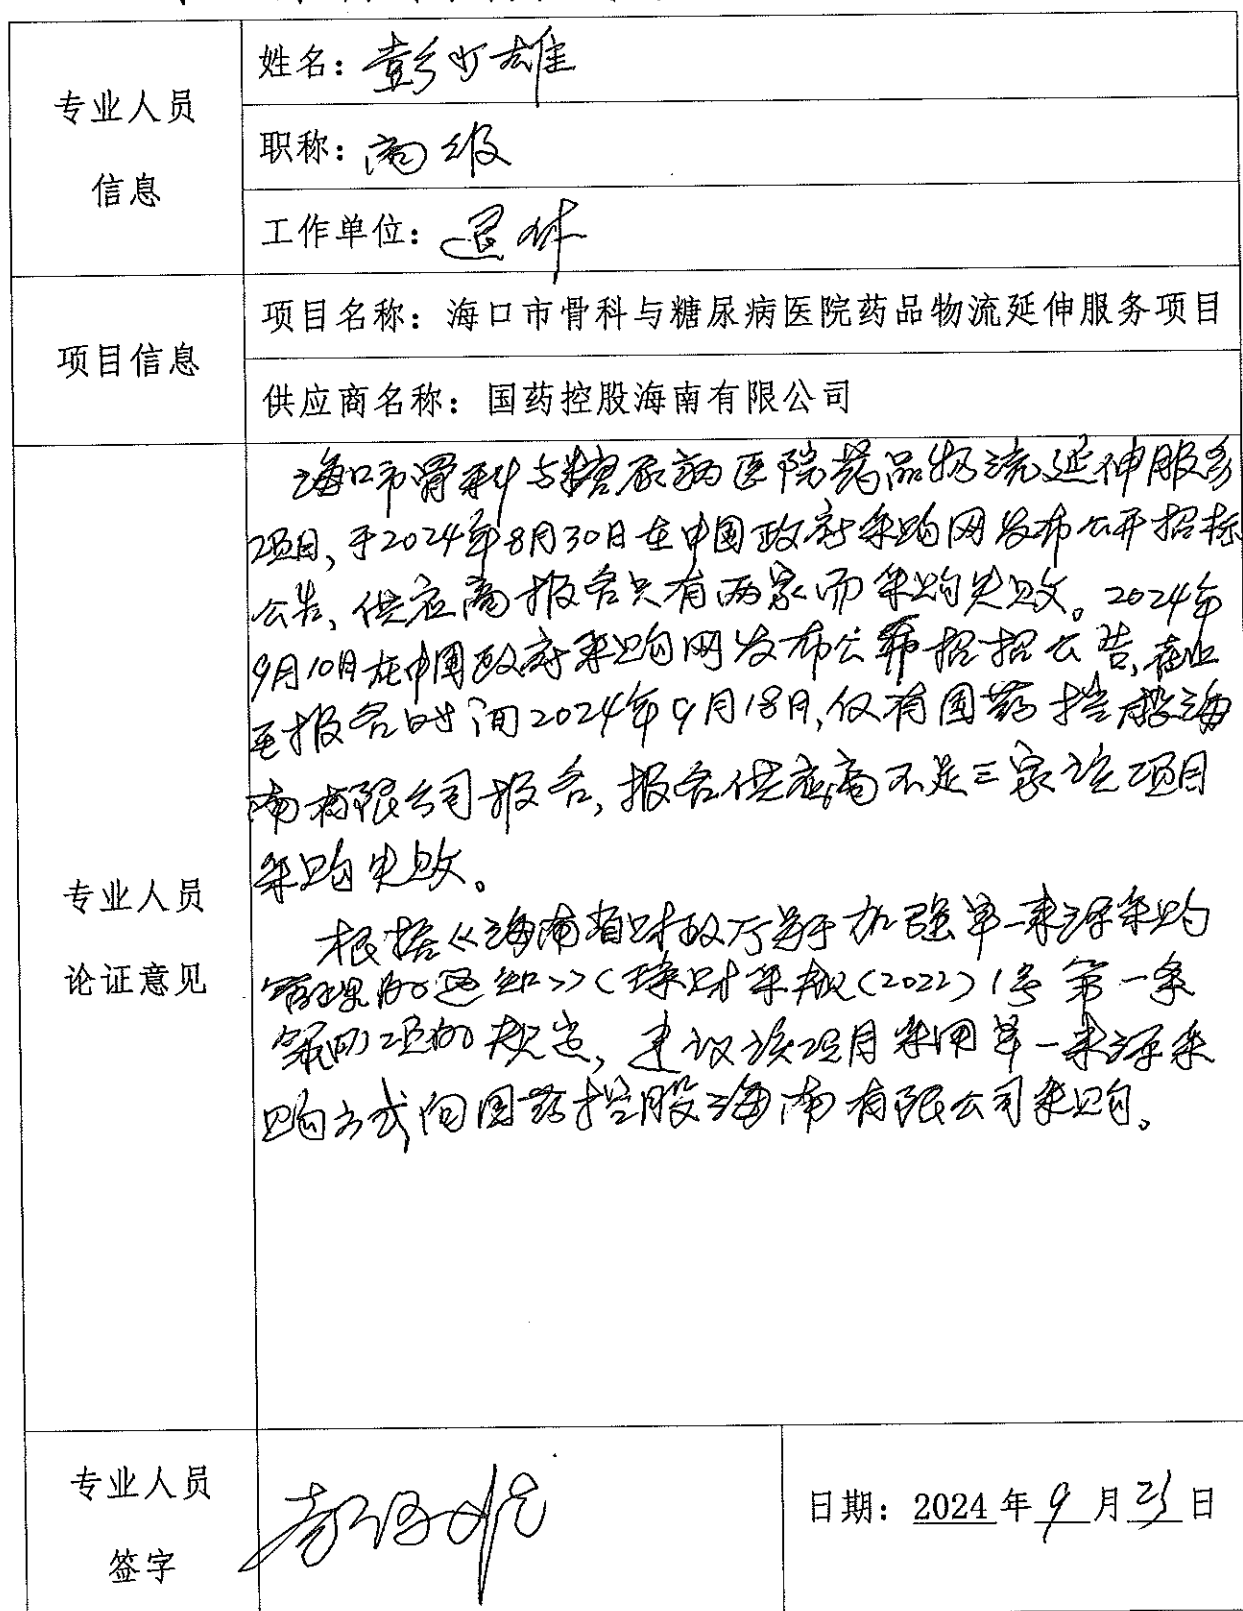 专业人员
信息
姓名：彭 雄
职称：高级
工作单位：退休
项目信息
项目名称：海口市骨科与糖尿病医院药品物流延伸服务项目
供应商名称：国药控股海南有限公司
专业人员
论证意见
海口市骨科与糖尿病医院药品物流延伸服务
项目，于2024年8月30日在中国政府采购网发布公开招标
公告，供应商报名只有两家而采购失败。2024年
9月10日在中国政府采购网发布公 招招公告，截止
至报名时间2024年9月18日，仅有国药控股海
南有限公司报名，报名供应商不足三家该项目
采购失败。
根据《海南省财政厅关于加强单一来源采购
管理的通知》（琼财采规（2022）1号 第一条
第四项的规定，建议该项目采用单一来源采
购方式向国药控股海南有限公司采购。
专业人员
签字
日期：2024年9月23日